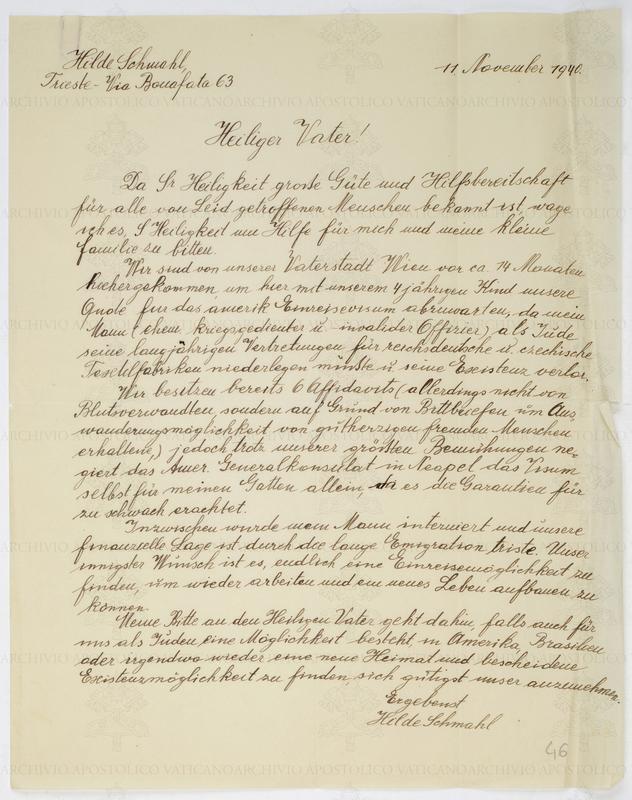 Hilde Schmahl,
Trieste - Via Bonafata 63
11. November 1940.
Heiliger Vater!
Da Sr Heiligkeit grosse Güte und Hilfsbereitschaft
für alle von Leid getroffenen Menschen bekannt ist, wage
ich es, S Heiligkeit um Hilfe für mich und meine kleine
Familie zu bitten.
Wir sind von unserer Vaterstadt Wien vor ca. 14 Monaten
hiehergekommen, um hier mit unserem 4 jährigen Kind unsere
Quote für das amerik Einreisevisum abzuwarten, da mein
Mann (ehem. kriegsgedienter u. invalider Offizier) als Jude
seine langjährigen Vertretungen für reichsdeutsche u. czechische
Textilfabriken niederlegen müsste u. seine Existenz verlor.
Wir besitzen bereits 6 Affidavits (allerdings nicht von
Blutsverwandten, sondern auf Grund von Bittbriefen um Aus-
wanderungsmöglichkeit von gutherzigen fremden Menschen
erhaltene,) jedoch trotz unserer grössten Bemühungen ne-
giert das Amer. Generalkonsulat in Neapel das Visum
selbst für meinen Gatten allein, da es die Garantien für
zu schwach erachtet.
Inzwischen wurde mein Mann interniert und unsere
finanzielle Lage ist durch die lange Emigration triste. Unser
innigster Wunsch ist es, endlich eine Einreisemöglichkeit zu
finden, um wieder arbeiten und ein neues Leben aufbauen zu
können.
Meine Bitte an den Heiligen Vater geht dahin, falls auch für
uns als Juden, eine Möglichkeit besteht, in Amerika, Brasilien
oder irgendwo wieder eine neue Heimat und bescheidene
Existenzmöglichkeit zu finden, sich gütigst unser anzunehmen.
Ergebenst
Hilde Schmahl
46
ARCHIVIO APOSTOLICO VATICANO